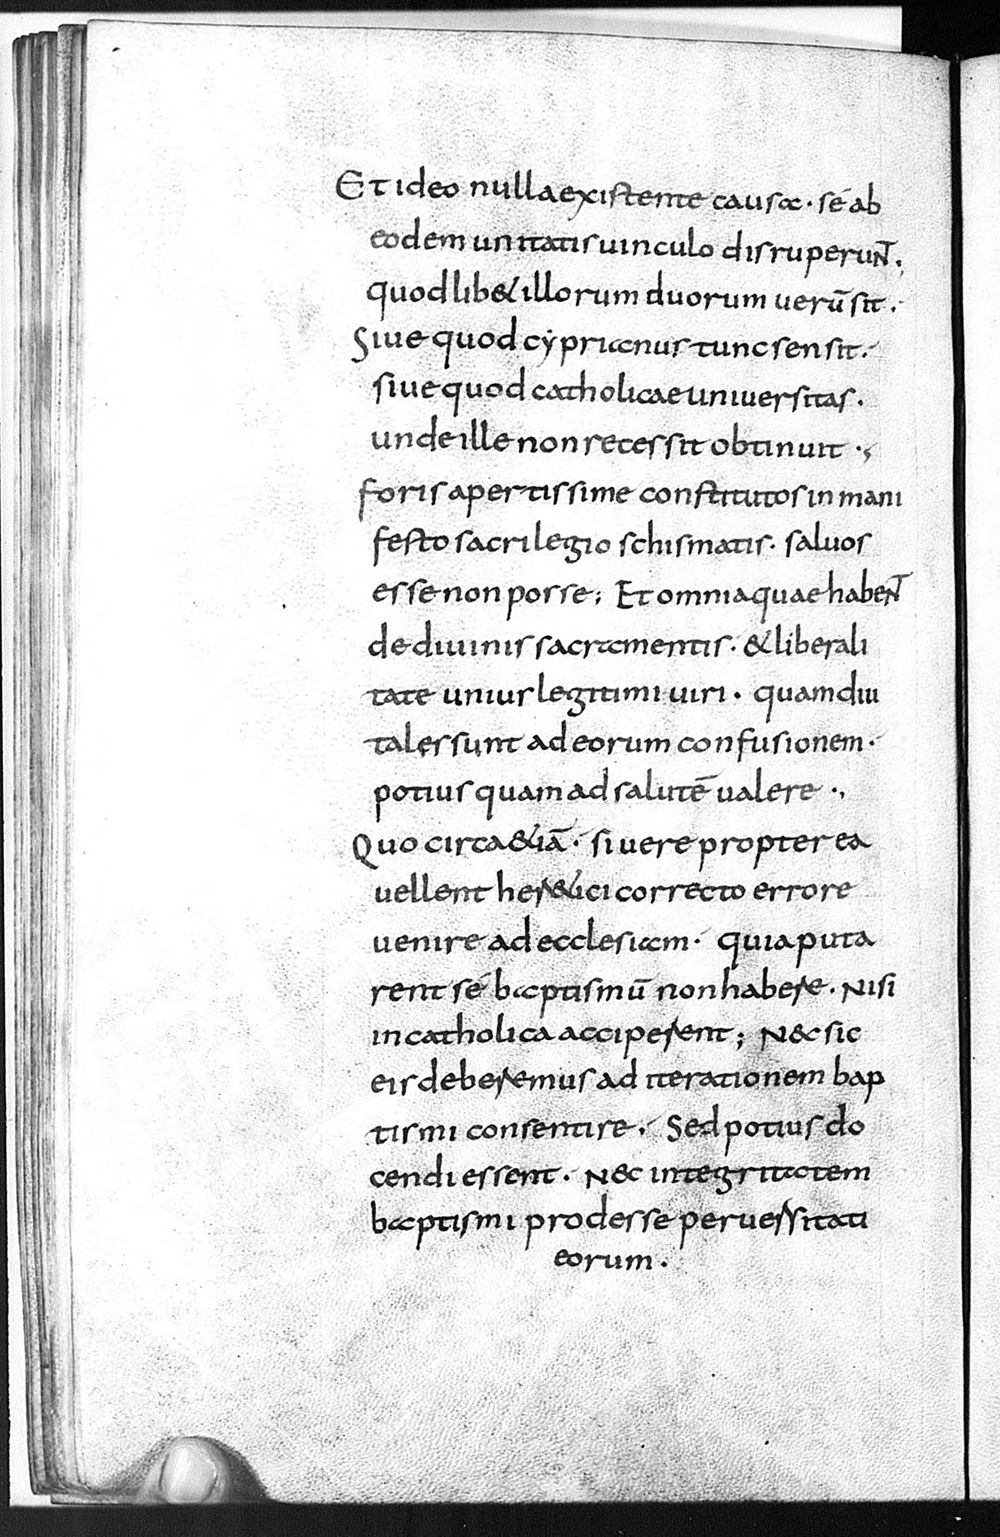 Et ideo nulla existente causa · sé ab
eodem unitatis uinculo disruperunt.
quodlib& illorum duorum uerū sit.
Siue quod cyprianus tunc sensit.
siue quod catholicae uniuersitas.
unde ille non recessit obtinuit ·,
foris apertissime constitutos in mani
festo sacrilegio schismatis · saluos
esse non posse; Et omnia quae habent
de diuinis sacramentis · & liberali
tate unius legitimi uiri · quamdiu
tales sunt ad eorum confusionem ·
potius quam ad salutē ualere ·,
Quo circa &iā · si uere propter ea
uellent her&ici correcto errore
uenire ad ecclesiam · quia puta
rent sé baptismū non habere. Nisi
in catholica acciperent; N&c sic
eis deberemus ad iterationem bap
tismi consentire. Sed potius do
cendi essent · N&c integritatem
baptismi prodesse peruersitati
eorum.